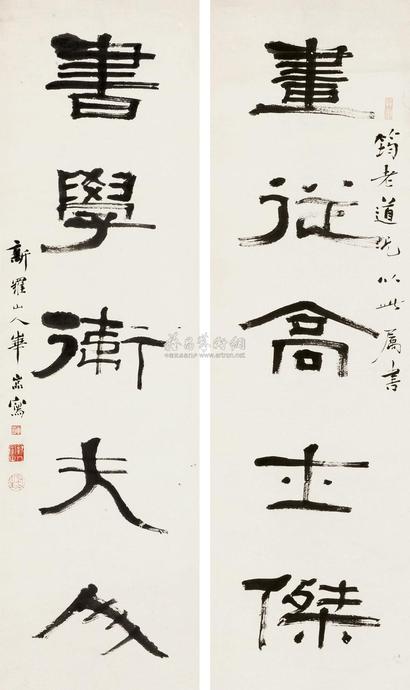 筠老道兄以此屬書
畫從高士傑
書學衛夫人
新羅山人華嵒寫
雅昌藝術網